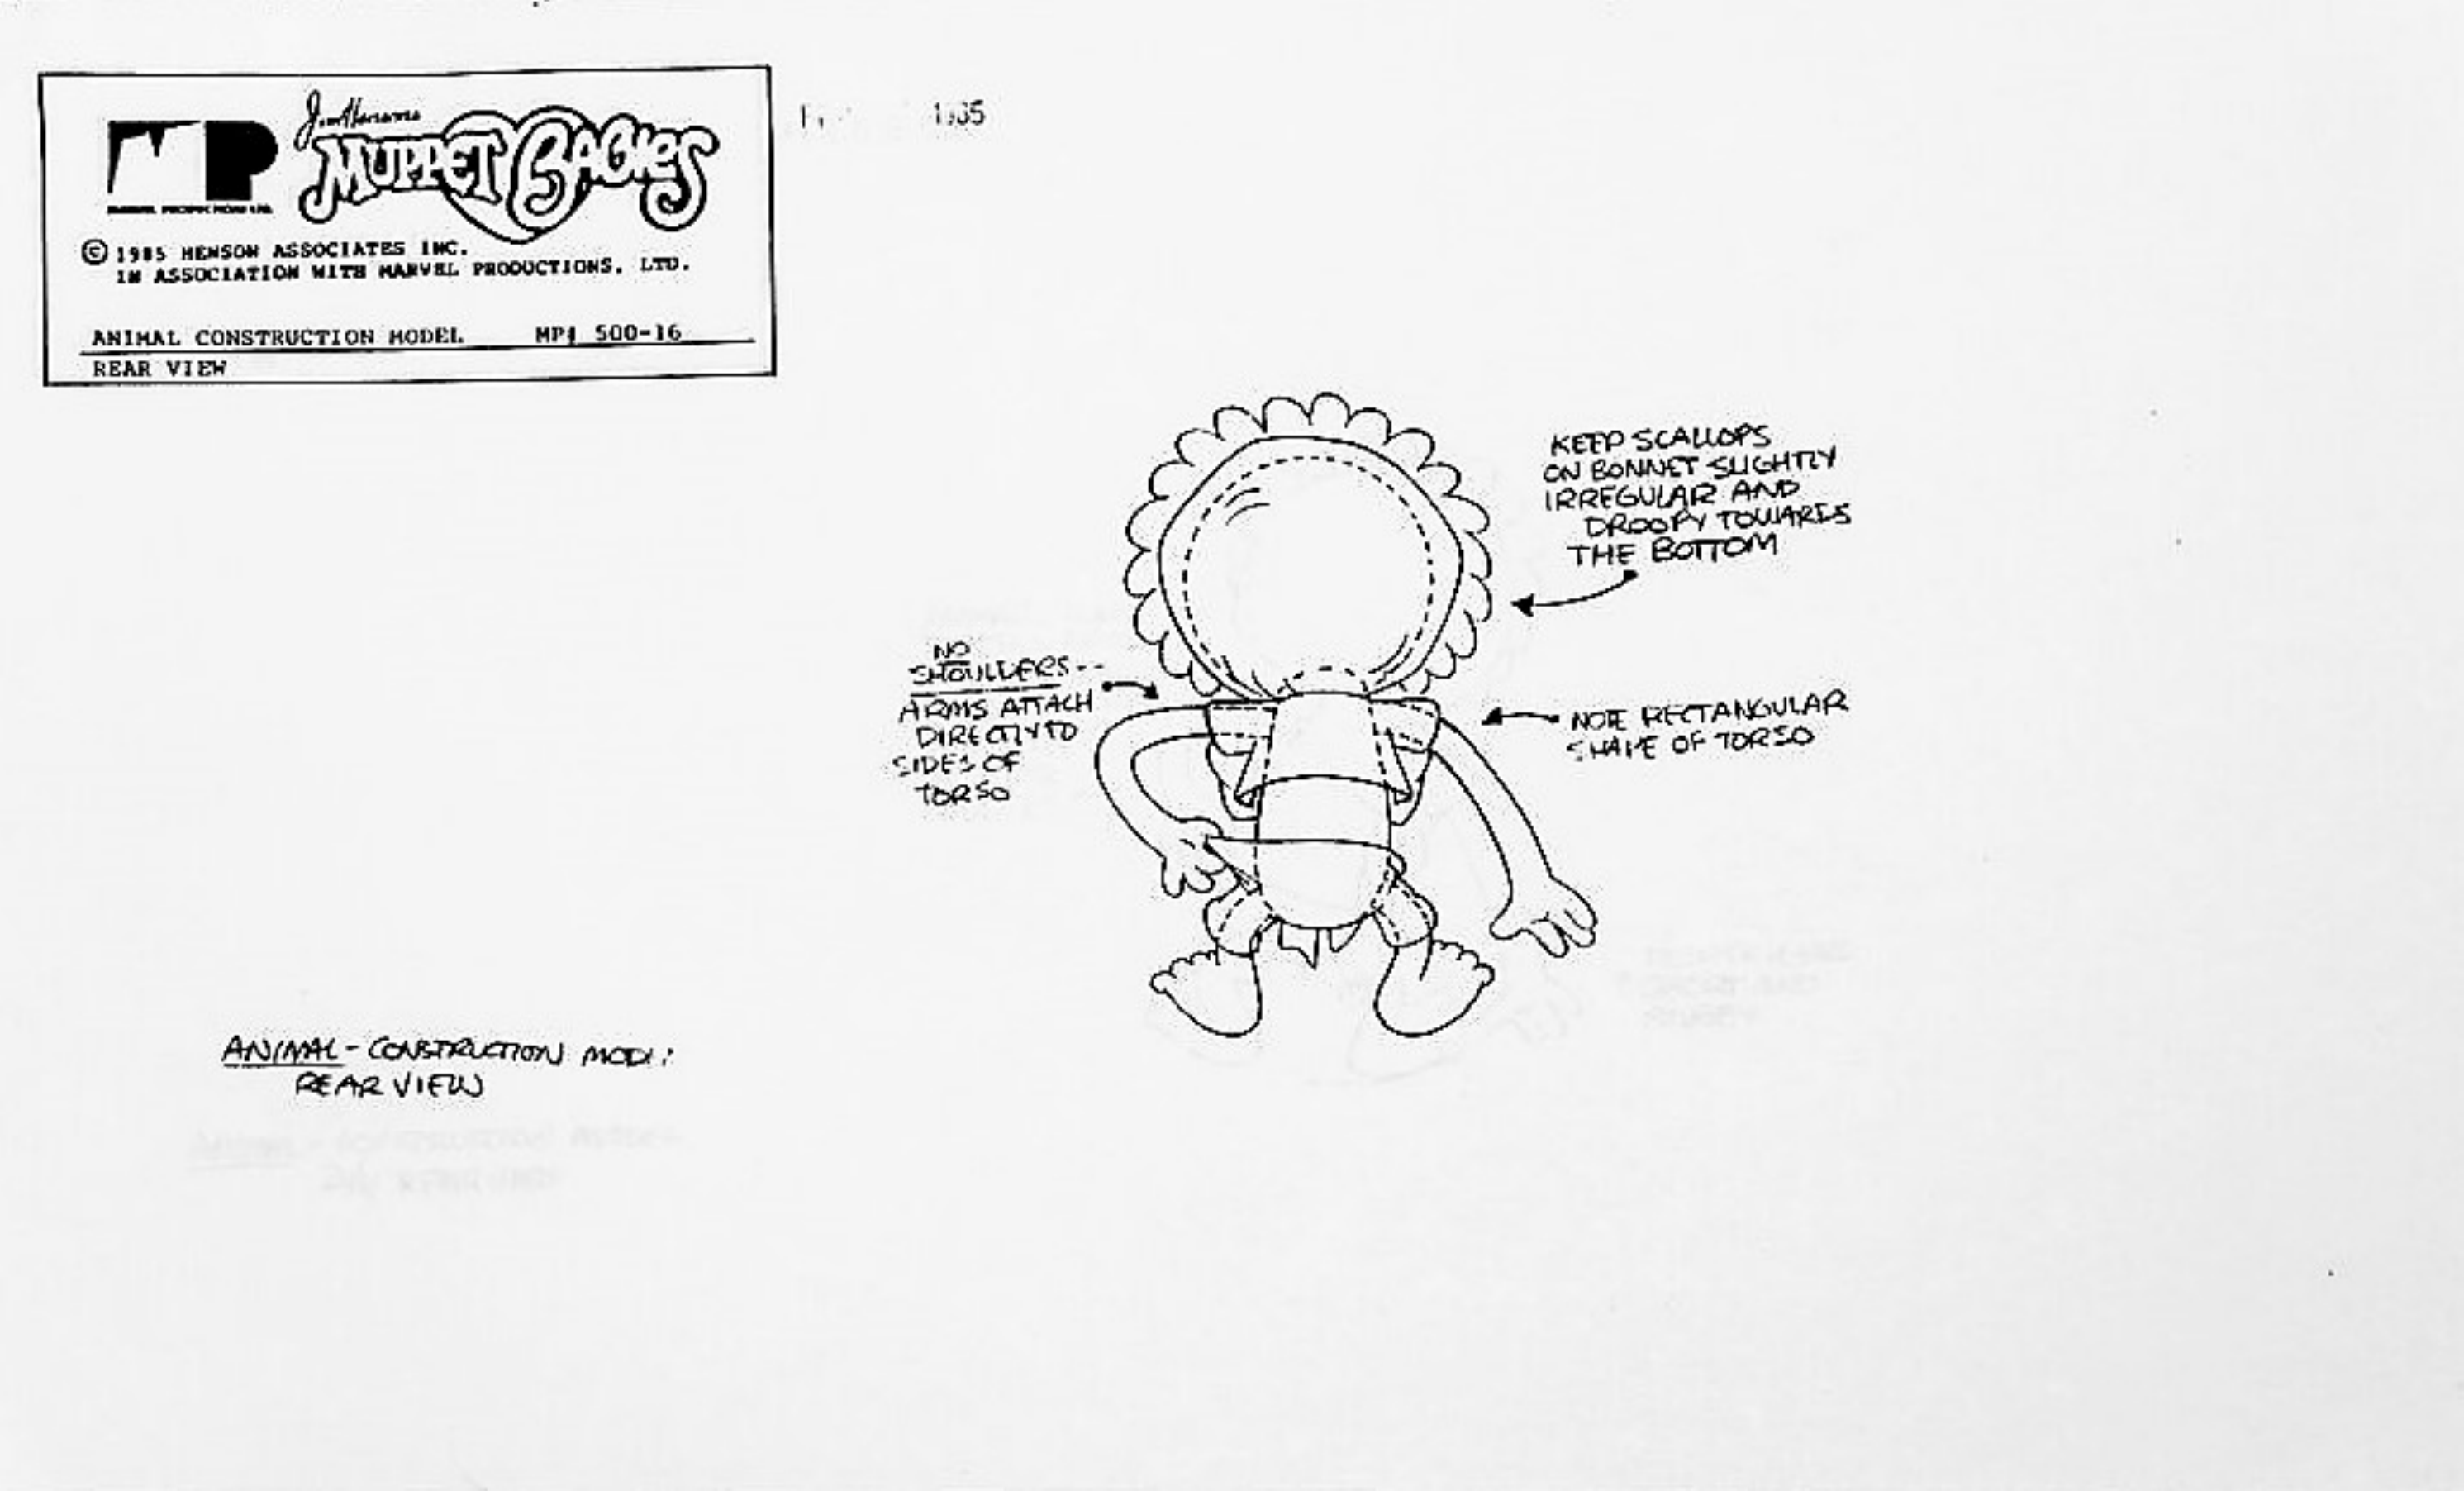 Jim Henson's
MUPPET BABIES
MP
MARVEL PRODUCTIONS LTD.
© 1985 HENSON ASSOCIATES INC.
IN ASSOCIATION WITH MARVEL PRODUCTIONS, LTD.
ANIMAL CONSTRUCTION MODEL MP# 500-16
REAR VIEW
1985
KEEP SCALLOPS
ON BONNET SLIGHTLY
IRREGULAR AND
DROOPY TOWARDS
THE BOTTOM
NO
SHOULDERS--
ARMS ATTACH
DIRECTLY TO
SIDES OF
TORSO
NOTE RECTANGULAR
SHAPE OF TORSO
ANIMAL - CONSTRUCTION
REAR VIEW